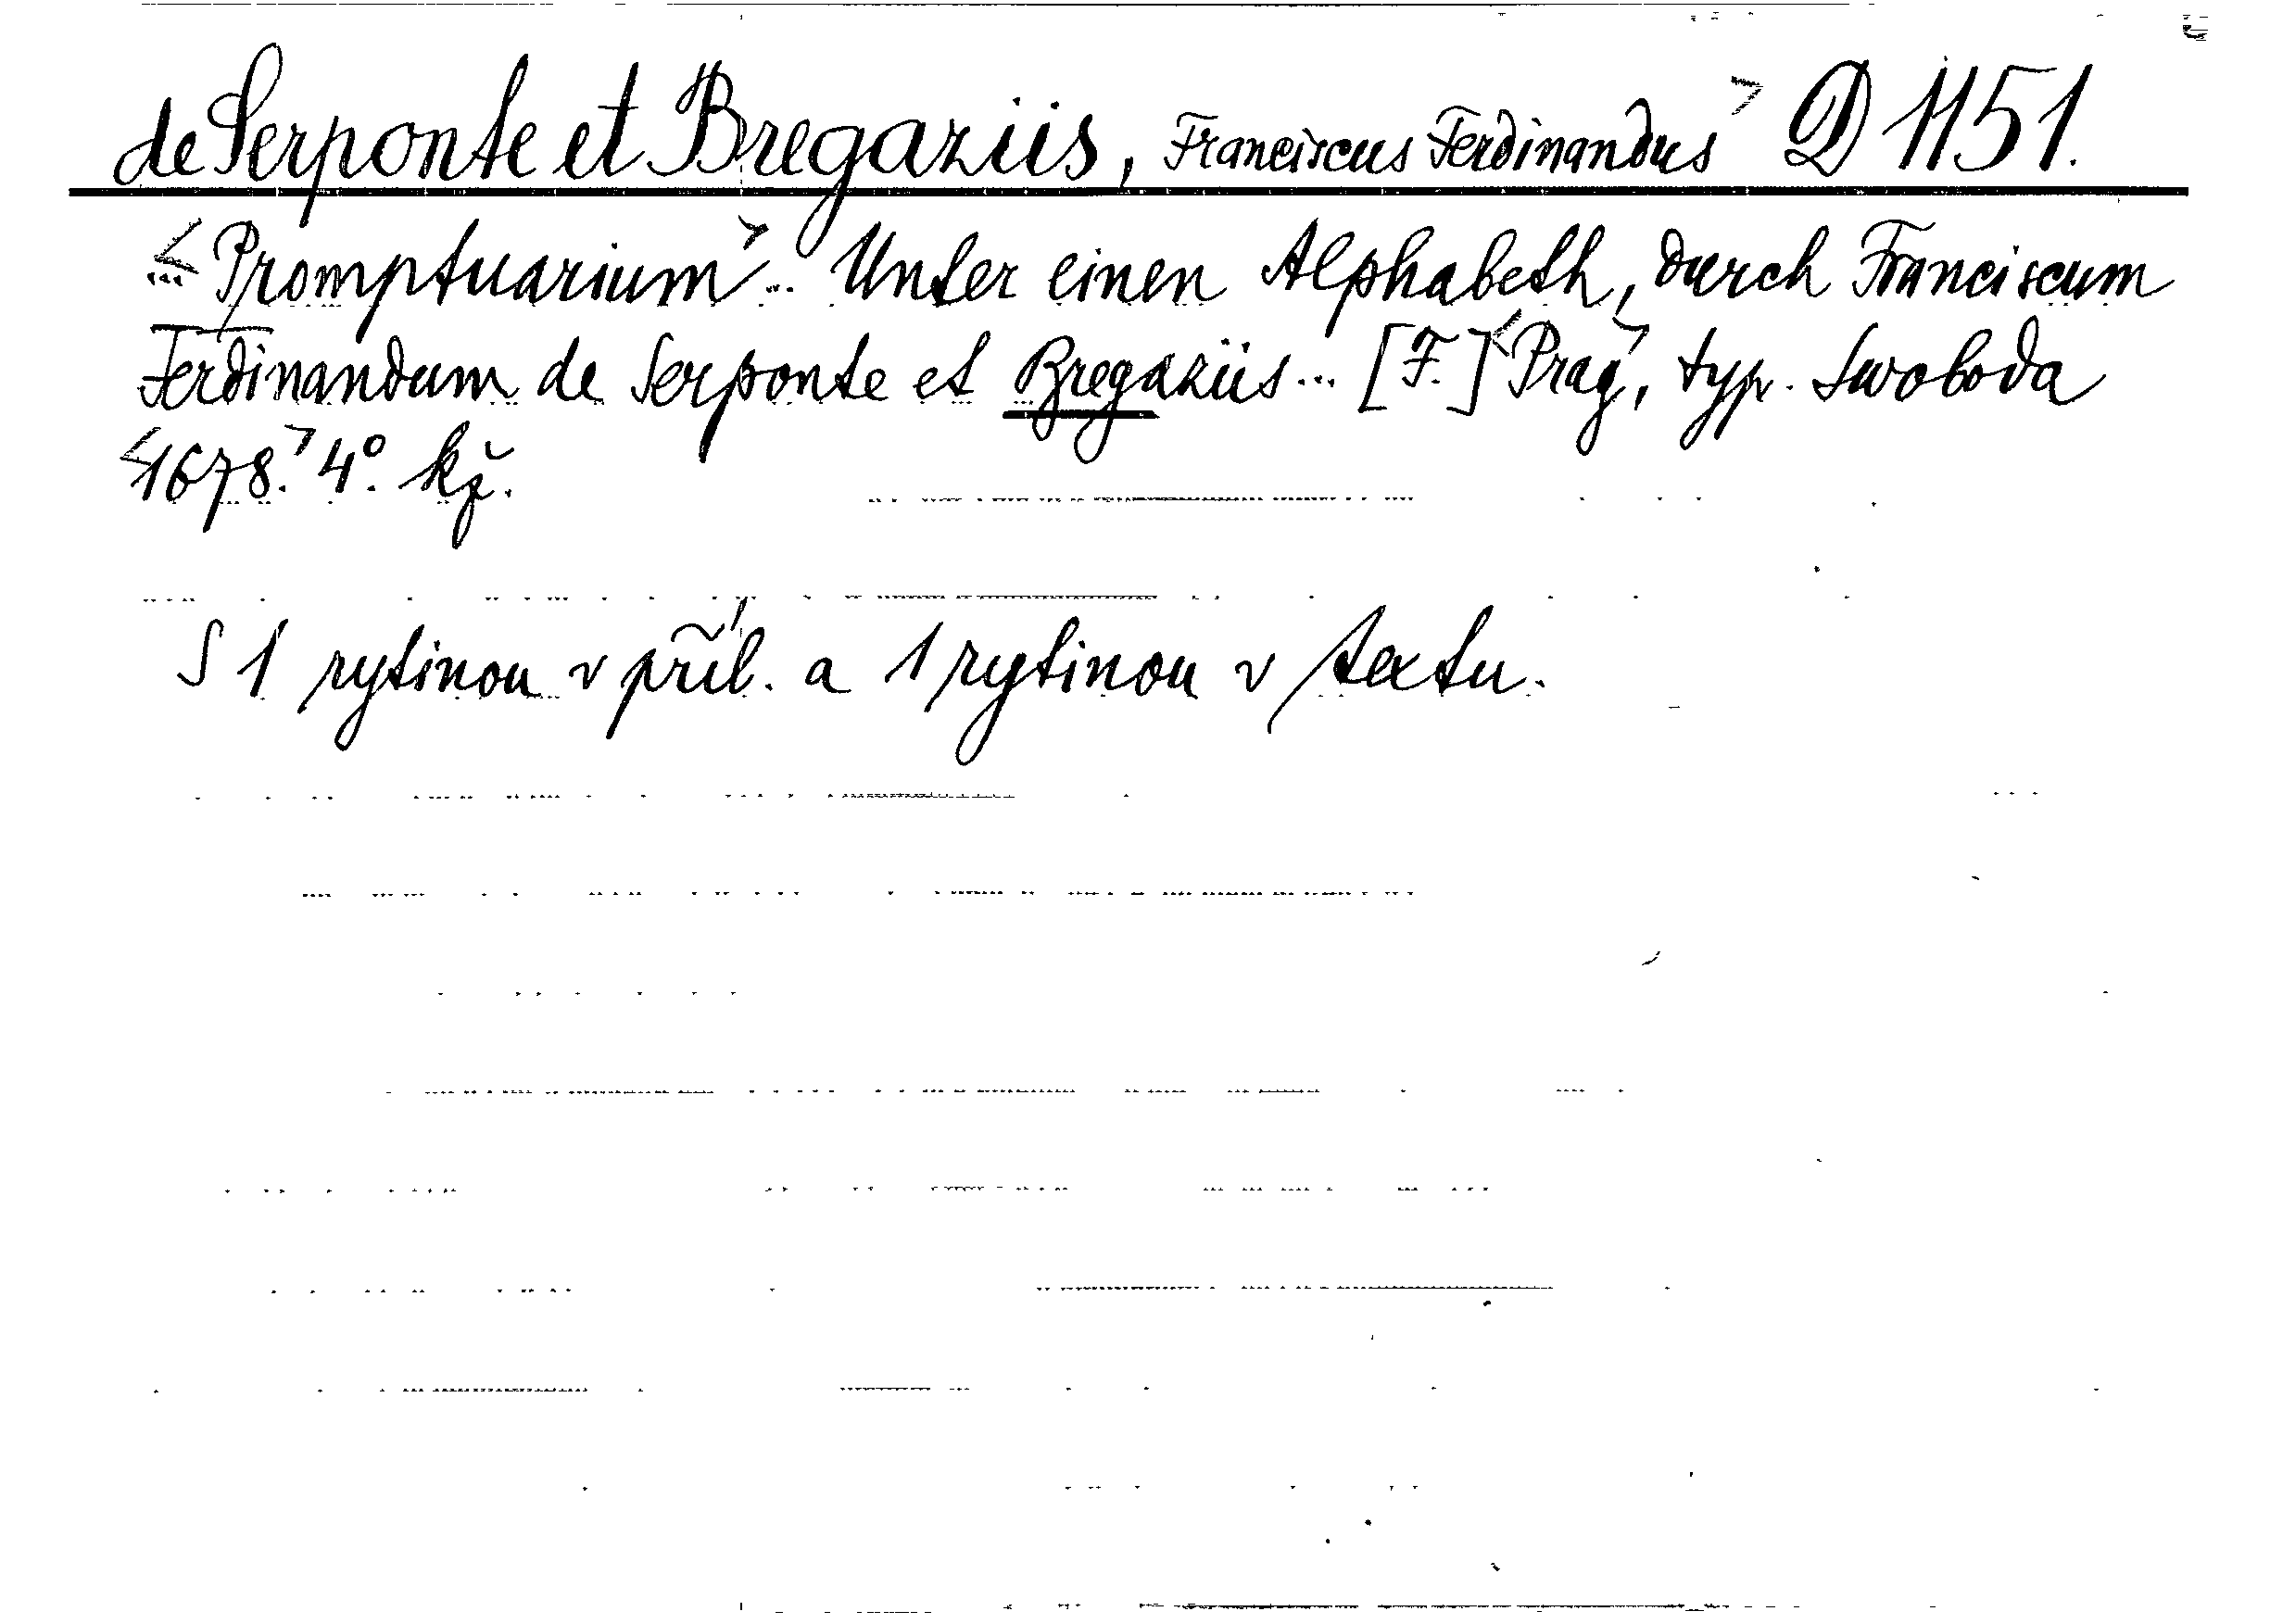 de Serponte et Bregaziis, Franciscus Ferdinandus> D 1151.
<... Promptuarium>... Unter einen Alphabeth, durch Franciscum
Ferdinandum de Serponte et Bregaziis... [F.] <Prag>, typ. Swoboda
<1678.> 4°. kž.
S 1 rytinou v příl. a 1 rytinou v textu.